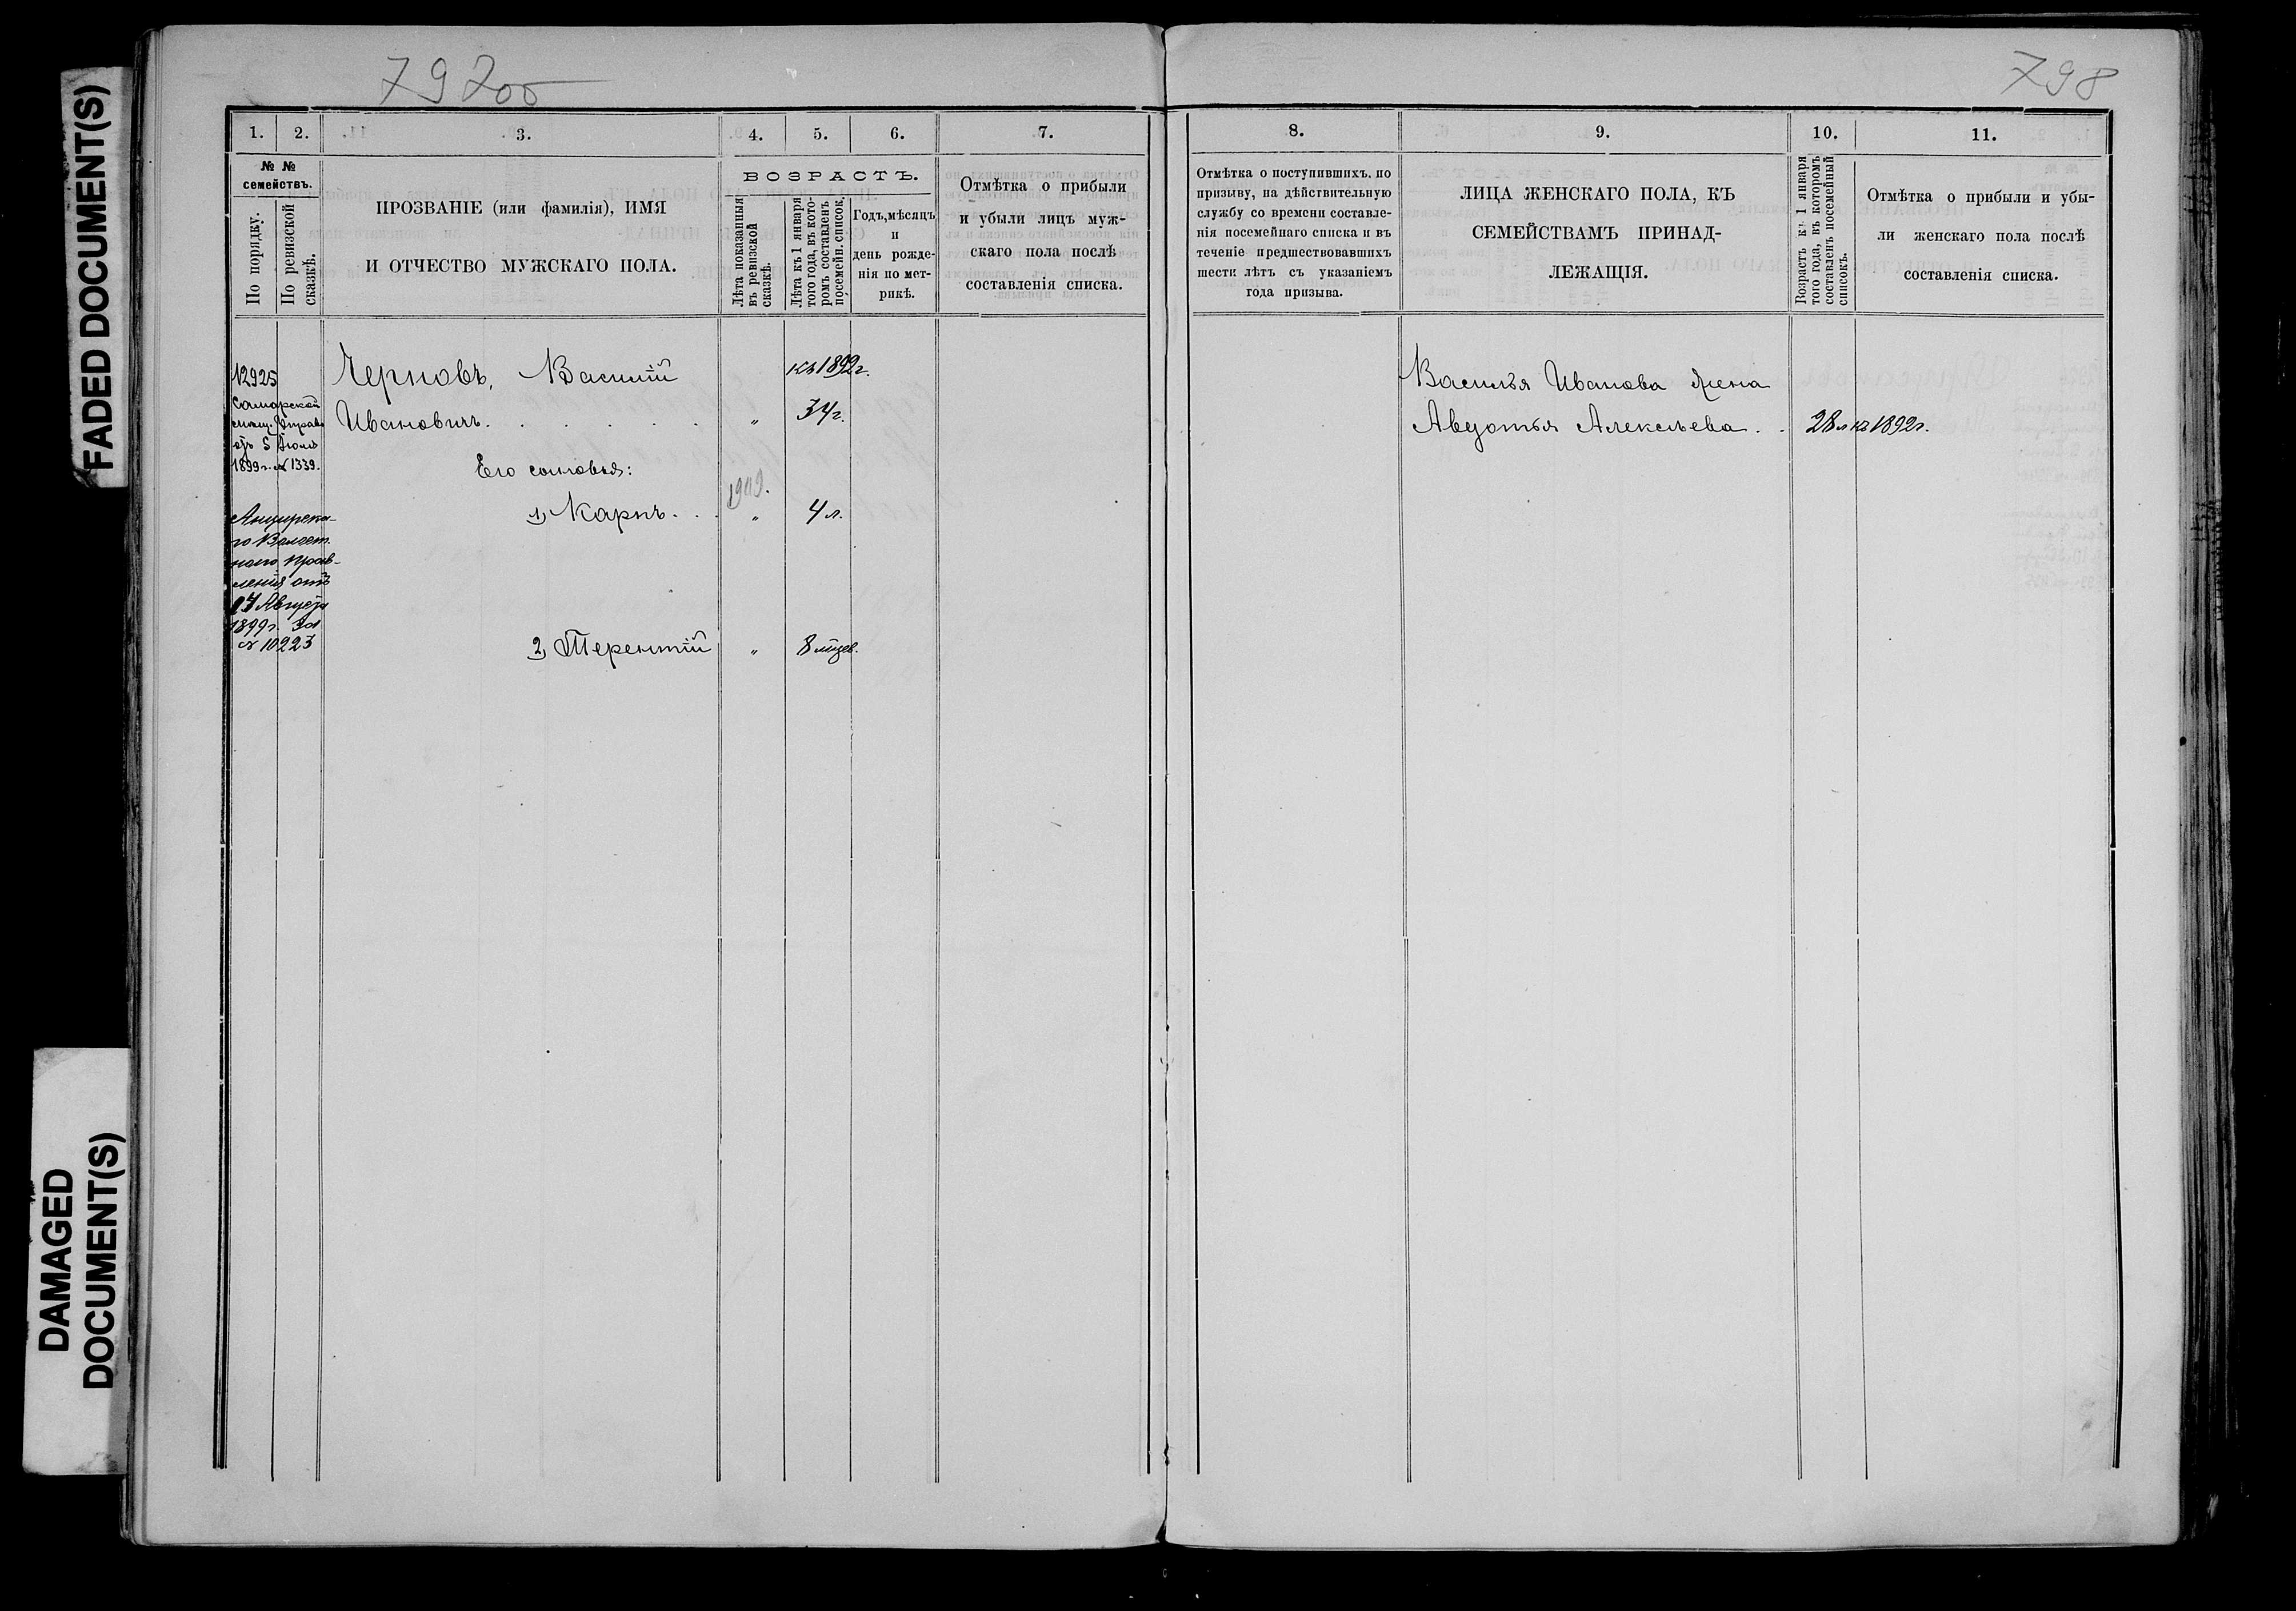 FADED DOCUMENT(S)
DAMAGED
DOCUMENT(S)
797об
798
1.
2.
3.
4.
5.
6.
7.
№ №
семействъ.
По порядку.
По ревизской
сказкѣ.
ПРОЗВАНІЕ (или фамилія), ИМЯ
И ОТЧЕСТВО МУЖСКАГО ПОЛА.
ВОЗРАСТЪ.
Лѣта показанныя
въ ревизской
сказкѣ.
Лѣта къ 1 января
того года, въ кото-
ромъ составленъ
посемейн. список.
Годъ, мѣсяцъ
и
день рожде-
нія по мет-
рикѣ.
Отмѣтка о прибыли
и убыли лицъ муж-
скаго пола послѣ
составленія списка.
12925
Самарской
мѣщ. Управы
отъ 5 Іюля
1899 г. № 1339.
Волост-
наго Прав-
ленія отъ
17 Августа
1899 г. за
№ 10223
Черновъ, Василій
къ 1892 г.
Ивановичъ. . . . . . „ 34 г.
Его сыновья:
1909.
1) Карпъ. . . „ 4 л.
2) Терентій „ 8 мѣсев.
8.
9.
10.
11.
Отмѣтка о поступившихъ. по
призыву, на дѣйствительную
службу со времени составле-
нія посемейнаго списка и въ
теченіе предшествовавшихъ
шести лѣтъ съ указаніемъ
года призыва.
ЛИЦА ЖЕНСКАГО ПОЛА, КЪ
СЕМЕЙСТВАМЪ ПРИНАД-
ЛЕЖАЩІЯ.
Возрастъ къ 1 января
того года, въ которомъ
составленъ посемейный
списокъ.
Отмѣтка о прибыли и убы-
ли женскаго пола послѣ
составленія списка.
Василія Иванова жена
Авдотья Алексѣева. . 28 л. къ 1892 г.